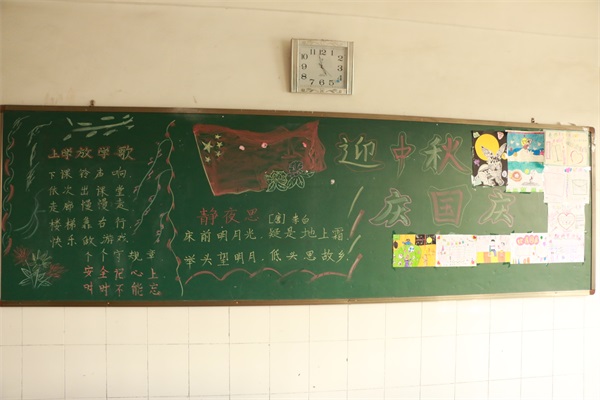 上学放学歌
下课铃声响,
依次出课堂
走廊慢慢走
楼梯靠右行
快乐做游戏
个个守规章
安全记心上
时时不能忘
静夜思 [唐] 李白
床前明月光,疑是地上霜。
举头望明月,低头思故乡。
迎中秋
庆国庆